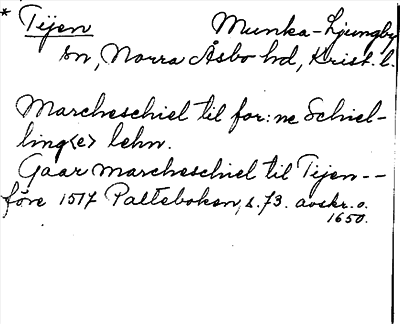 * Tijen Munka-Ljungby
sn, Norra Åsbo hd, Krist. l.
Marcheschiel til for:ne Schiel-
ling<e> lehn.
Gaar marcheschiel til Tijen --
före 1517 Palteboken, s. 73. avskr. o.
1650.